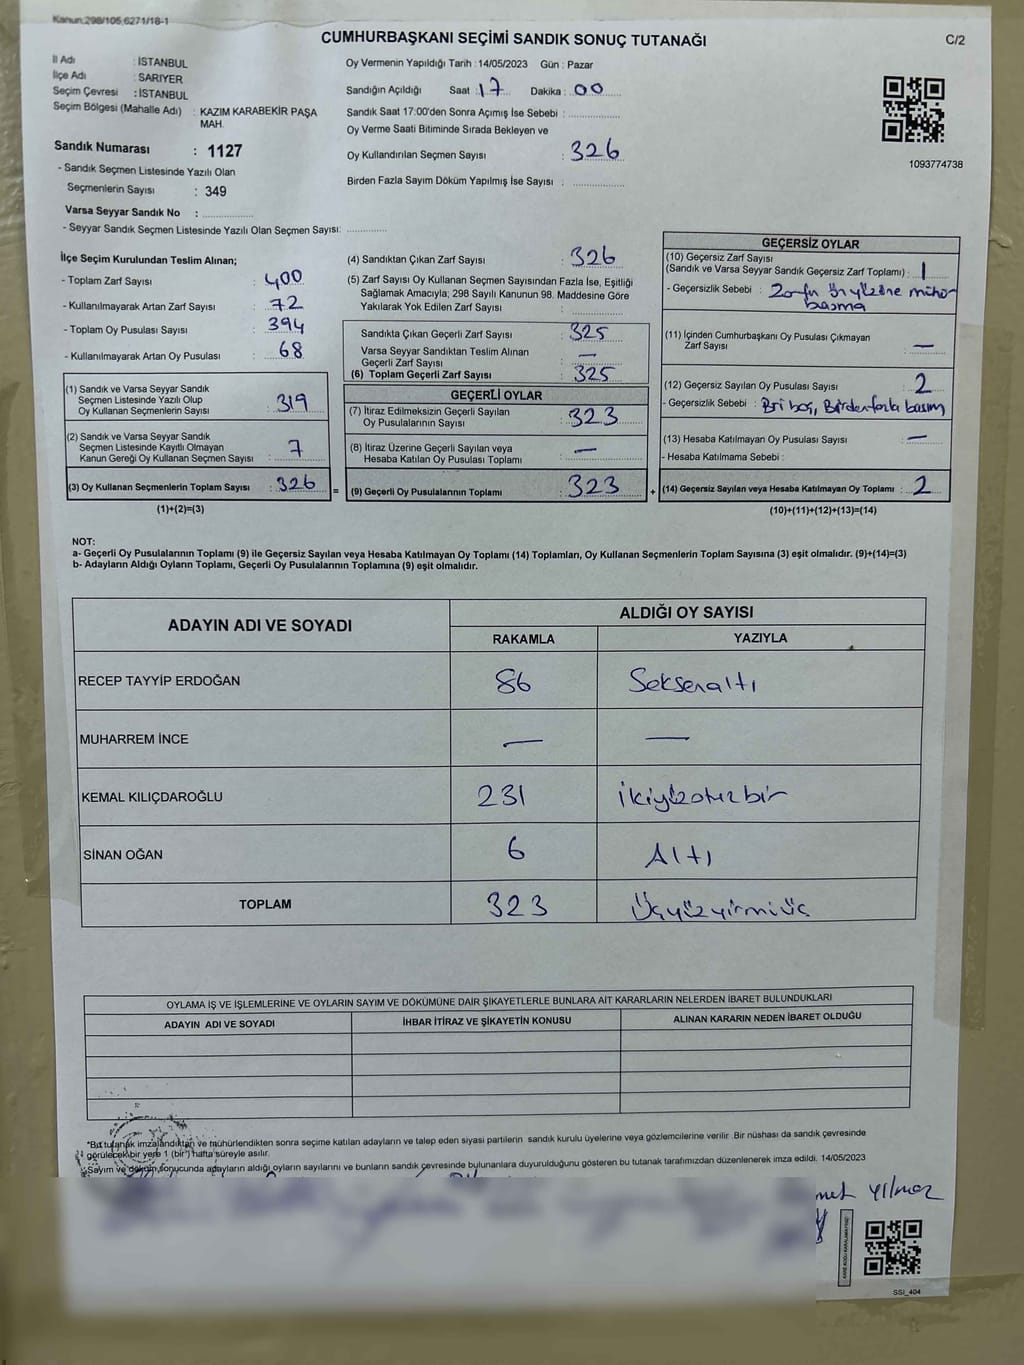 Kanun:298/105,6271/18-1
CUMHURBAŞKANI SEÇİMİ SANDIK SONUÇ TUTANAĞI
C/2
İl Adı : İSTANBUL
İlçe Adı : SARIYER
Seçim Çevresi : İSTANBUL
Seçim Bölgesi (Mahalle Adı) : KAZIM KARABEKİR PAŞA
MAH.
Sandık Numarası : 1127
- Sandık Seçmen Listesinde Yazılı Olan
Seçmenlerin Sayısı : 349
Varsa Seyyar Sandık No :
- Seyyar Sandık Seçmen Listesinde Yazılı Olan Seçmen Sayısı:
Oy Vermenin Yapıldığı Tarih : 14/05/2023 Gün : Pazar
Sandığın Açıldığı Saat : 17 Dakika : 00
Sandık Saat 17:00'den Sonra Açımış İse Sebebi :
Oy Verme Saati Bitiminde Sırada Bekleyen ve
Oy Kullandırılan Seçmen Sayısı : 326
Birden Fazla Sayım Döküm Yapılmış İse Sayısı :
1093774738
İlçe Seçim Kurulundan Teslim Alınan;
- Toplam Zarf Sayısı : 400
- Kullanılmayarak Artan Zarf Sayısı : 72
- Toplam Oy Pusulası Sayısı : 394
- Kullanılmayarak Artan Oy Pusulası : 68
(1) Sandık ve Varsa Seyyar Sandık
Seçmen Listesinde Yazılı Olup
Oy Kullanan Seçmenlerin Sayısı : 319
(2) Sandık ve Varsa Seyyar Sandık
Seçmen Listesinde Kayıtlı Olmayan
Kanun Gereği Oy Kullanan Seçmen Sayısı : 7
(3) Oy Kullanan Seçmenlerin Toplam Sayısı : 326
(1)+(2)=(3)
(4) Sandıktan Çıkan Zarf Sayısı : 326
(5) Zarf Sayısı Oy Kullanan Seçmen Sayısından Fazla İse, Eşitliği
Sağlamak Amacıyla; 298 Sayılı Kanunun 98. Maddesine Göre
Yakılarak Yok Edilen Zarf Sayısı :
Sandıkta Çıkan Geçerli Zarf Sayısı : 325
Varsa Seyyar Sandıktan Teslim Alınan
Geçerli Zarf Sayısı : —
(6) Toplam Geçerli Zarf Sayısı : 325
GEÇERLİ OYLAR
(7) İtiraz Edilmeksizin Geçerli Sayılan
Oy Pusulalarının Sayısı : 323
(8) İtiraz Üzerine Geçerli Sayılan veya
Hesaba Katılan Oy Pusulaları Toplamı : —
= (9) Geçerli Oy Pusulalarının Toplamı : 323
GEÇERSİZ OYLAR
(10) Geçersiz Zarf Sayısı
(Sandık ve Varsa Seyyar Sandık Geçersiz Zarf Toplamı) : 1
- Geçersizlik Sebebi : Zarfın ön yüzüne mühür
basma
(11) İçinden Cumhurbaşkanı Oy Pusulası Çıkmayan
Zarf Sayısı : —
(12) Geçersiz Sayılan Oy Pusulası Sayısı : 2
- Geçersizlik Sebebi : Biri boş, Birden fazla basım
(13) Hesaba Katılmayan Oy Pusulası Sayısı : —
- Hesaba Katılmama Sebebi :
+ (14) Geçersiz Sayılan veya Hesaba Katılmayan Oy Toplamı : 2
(10)+(11)+(12)+(13)=(14)
NOT:
a- Geçerli Oy Pusulalarının Toplamı (9) ile Geçersiz Sayılan veya Hesaba Katılmayan Oy Toplamı (14) Toplamları, Oy Kullanan Seçmenlerin Toplam Sayısına (3) eşit olmalıdır. (9)+(14)=(3)
b- Adayların Aldığı Oyların Toplamı, Geçerli Oy Pusulalarının Toplamına (9) eşit olmalıdır.
ADAYIN ADI VE SOYADI
ALDIĞI OY SAYISI
RAKAMLA YAZIYLA
RECEP TAYYİP ERDOĞAN 86 Seksenaltı
MUHARREM İNCE — —
KEMAL KILIÇDAROĞLU 231 ikiyüzotuzbir
SİNAN OĞAN 6 Altı
TOPLAM 323 Üçyüzyirmiüç
OYLAMA İŞ VE İŞLEMLERİNE VE OYLARIN SAYIM VE DÖKÜMÜNE DAİR ŞİKAYETLERLE BUNLARA AİT KARARLARIN NELERDEN İBARET BULUNDUKLARI
ADAYIN ADI VE SOYADI İHBAR İTİRAZ VE ŞİKAYETİN KONUSU ALINAN KARARIN NEDEN İBARET OLDUĞU
*Bu tutanak imzalandıktan ve mühürlendikten sonra seçime katılan adayların ve talep eden siyasi partilerin sandık kurulu üyelerine veya gözlemcilerine verilir .Bir nüshası da sandık çevresinde
görülecek bir yere 1 (bir ) hafta süreyle asılır.
Sayım ve döküm sonucunda adayların aldığı oyların sayılarını ve bunların sandık çevresinde bulunanlara duyurulduğunu gösteren bu tutanak tarafımızdan düzenlenerek imza edildi. 14/05/2023
met Yılmaz
SSI_404